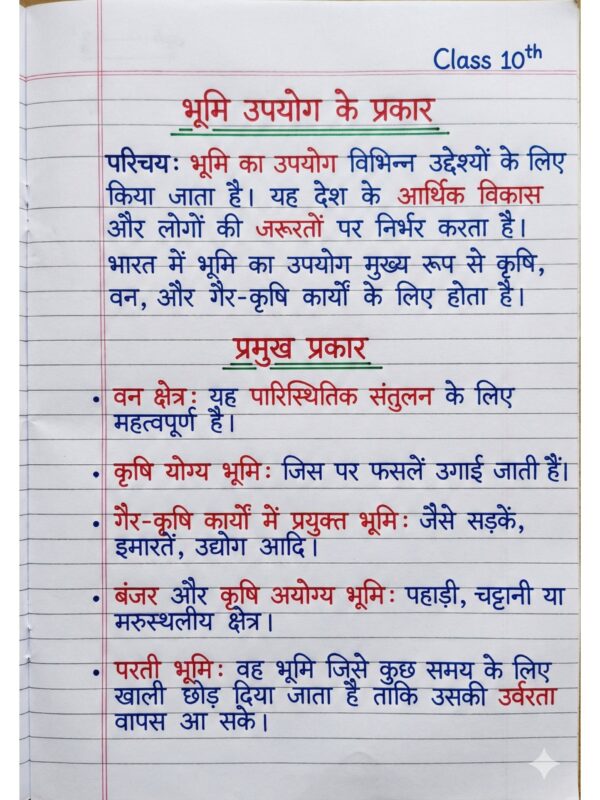 Class 10th
भूमि उपयोग के प्रकार
परिचय: भूमि का उपयोग विभिन्न उद्देश्यों के लिए
किया जाता है। यह देश के आर्थिक विकास
और लोगों की जरूरतों पर निर्भर करता है।
भारत में भूमि का उपयोग मुख्य रूप से कृषि,
वन, और गैर-कृषि कार्यों के लिए होता है।
प्रमुख प्रकार
• वन क्षेत्र: यह पारिस्थितिक संतुलन के लिए
महत्वपूर्ण है।
• कृषि योग्य भूमि: जिस पर फसलें उगाई जाती हैं।
• गैर-कृषि कार्यों में प्रयुक्त भूमि: जैसे सड़कें,
इमारतें, उद्योग आदि।
• बंजर और कृषि अयोग्य भूमि: पहाड़ी, चट्टानी या
मरुस्थलीय क्षेत्र।
• परती भूमि: वह भूमि जिसे कुछ समय के लिए
खाली छोड़ दिया जाता है ताकि उसकी उर्वरता
वापस आ सके।